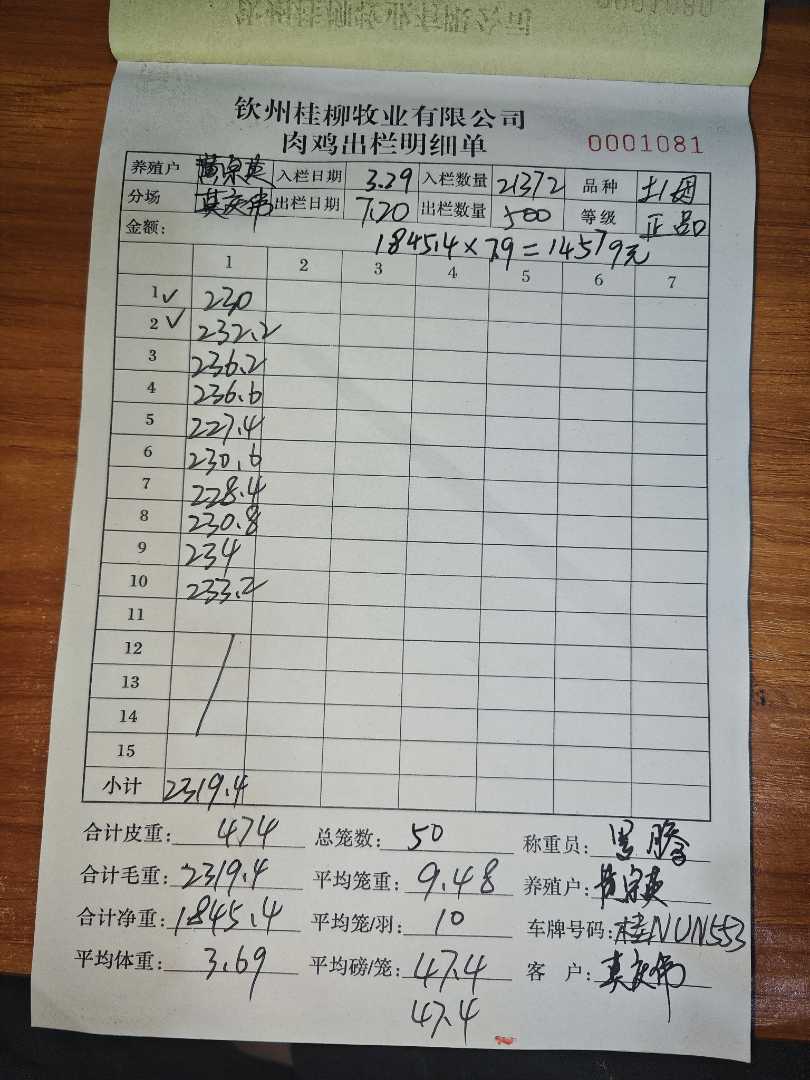 钦州桂柳牧业有限公司
肉鸡出栏明细单 0001081
养殖户 黄宗英 入栏日期 3.29 入栏数量 21372 品种 土1母
分场 莫庆伟 出栏日期 7.20 出栏数量 500 等级 正品
金额: 1845.4×7.9=14579元
1 2 3 4 5 6 7
1✓ 230
2✓ 232.2
3 236.2
4 236.6
5 227.4
6 230.6
7 228.4
8 230.8
9 234
10 233.2
11
12
13
14
15
小计 2319.4
合计皮重: 474 总笼数: 50 称重员:
合计毛重: 2319.4 平均笼重: 9.48 养殖户: 黄宗英
合计净重: 1845.4 平均笼/羽: 10 车牌号码: 桂NUN553
平均体重: 3.69 平均磅/笼: 47.4 客 户: 莫庆伟
47.4